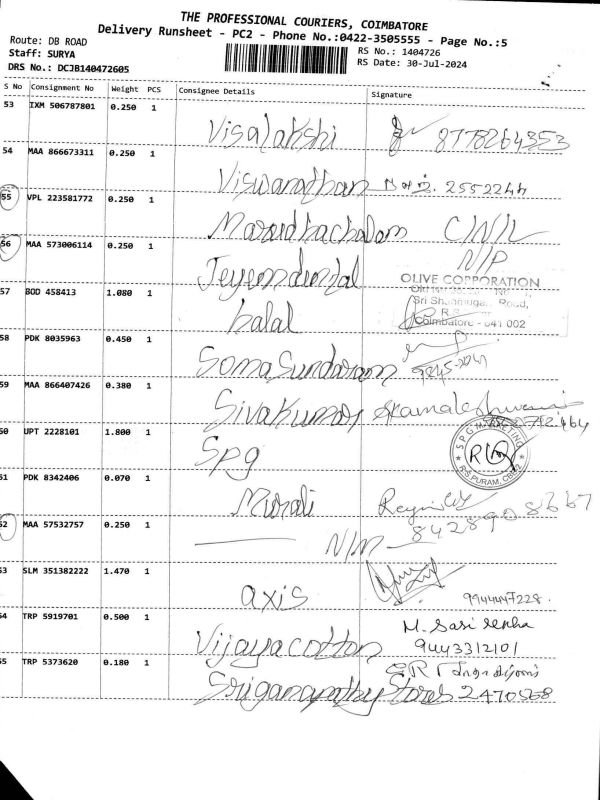 THE PROFESSIONAL COURIERS, COIMBATORE
Delivery Runsheet - PC2 - Phone No.:0422-3505555 - Page No.:5
Route: DB ROAD
RS No.: 1404726
Staff: SURYA
RS Date: 30-Jul-2024
DRS No.: DCJB140472605
S No Consignment No Weight PCS Consignee Details Signature
53 IXM 506787801 0.250 1
Visalakshi 8778264353
54 MAA 866673311 0.250 1
Viswanathan 2552244
55 VPL 223581772 0.250 1
Marudhachalam
56 MAA 573006114 0.250 1
N/P
OLIVE CORPORATION
Road,
Coimbatore - 641 002
57 BOD 458413 1.080 1
balal
58 PDK 8035963 0.450 1
Somasundaram
59 MAA 866407426 0.380 1
Sivakumar
60 UPT 2228101 1.800 1
Spg
SPG MARKETING
R.S. PURAM, CBE-2
61 PDK 8342406 0.070 1
Murali
62 MAA 57532757 0.250 1
N/M
8428908667
63 SLM 351382222 1.470 1
axis 9944447228
64 TRP 5919701 0.500 1
Vijaya cotton M. Sasi rekha
9443312101
65 TRP 5373620 0.180 1
Sriganapathy Stores 2470568